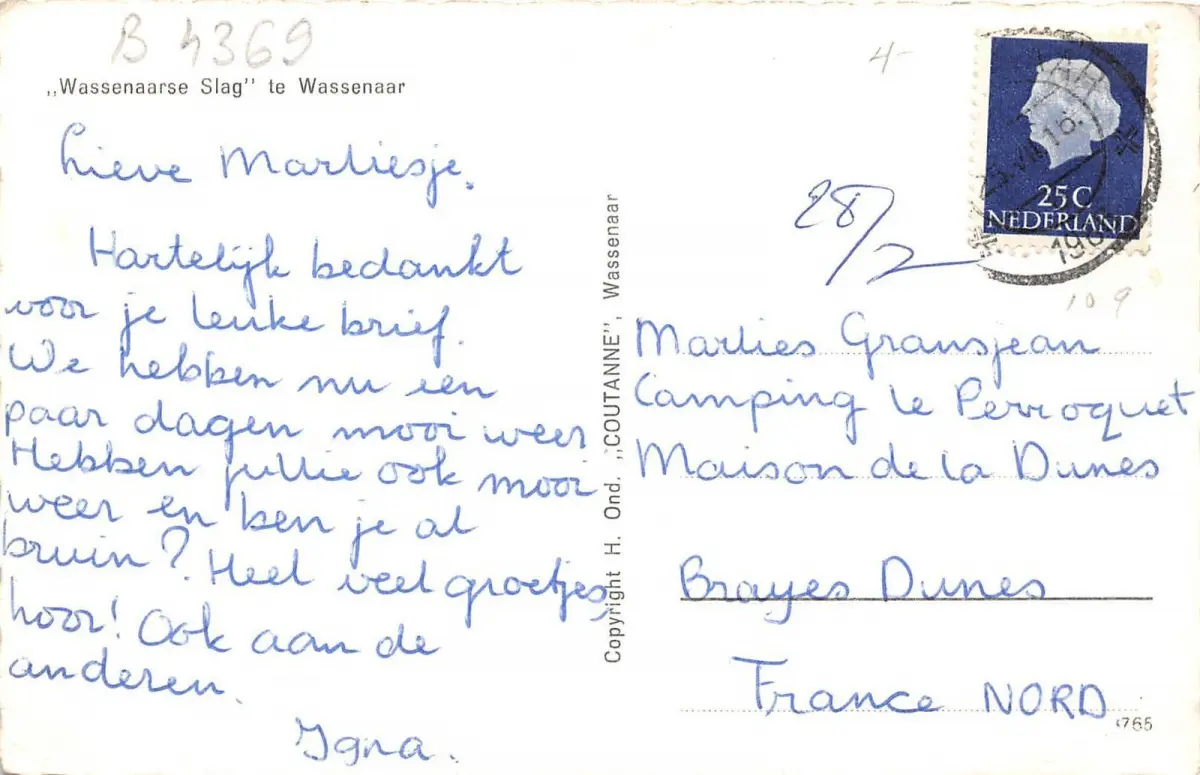 B 4369
„Wassenaarse Slag" te Wassenaar
Lieve Marliesje.
Hartelijk bedankt
voor je leuke brief.
We hebben nu een
paar dagen mooi weer
Hebben jullie ook mooi
weer en ben je al
bruin? Heel veel groetjes,
hoor! Ook aan de
anderen.
Igna.
Copyright H. Ond. „COUTANNE", Wassenaar
4-
25 C
NEDERLAND
28/7
109
Marlies Gransjean
Camping le Perroquet
Maison de la Dunes
Brayes Dunes
France NORD